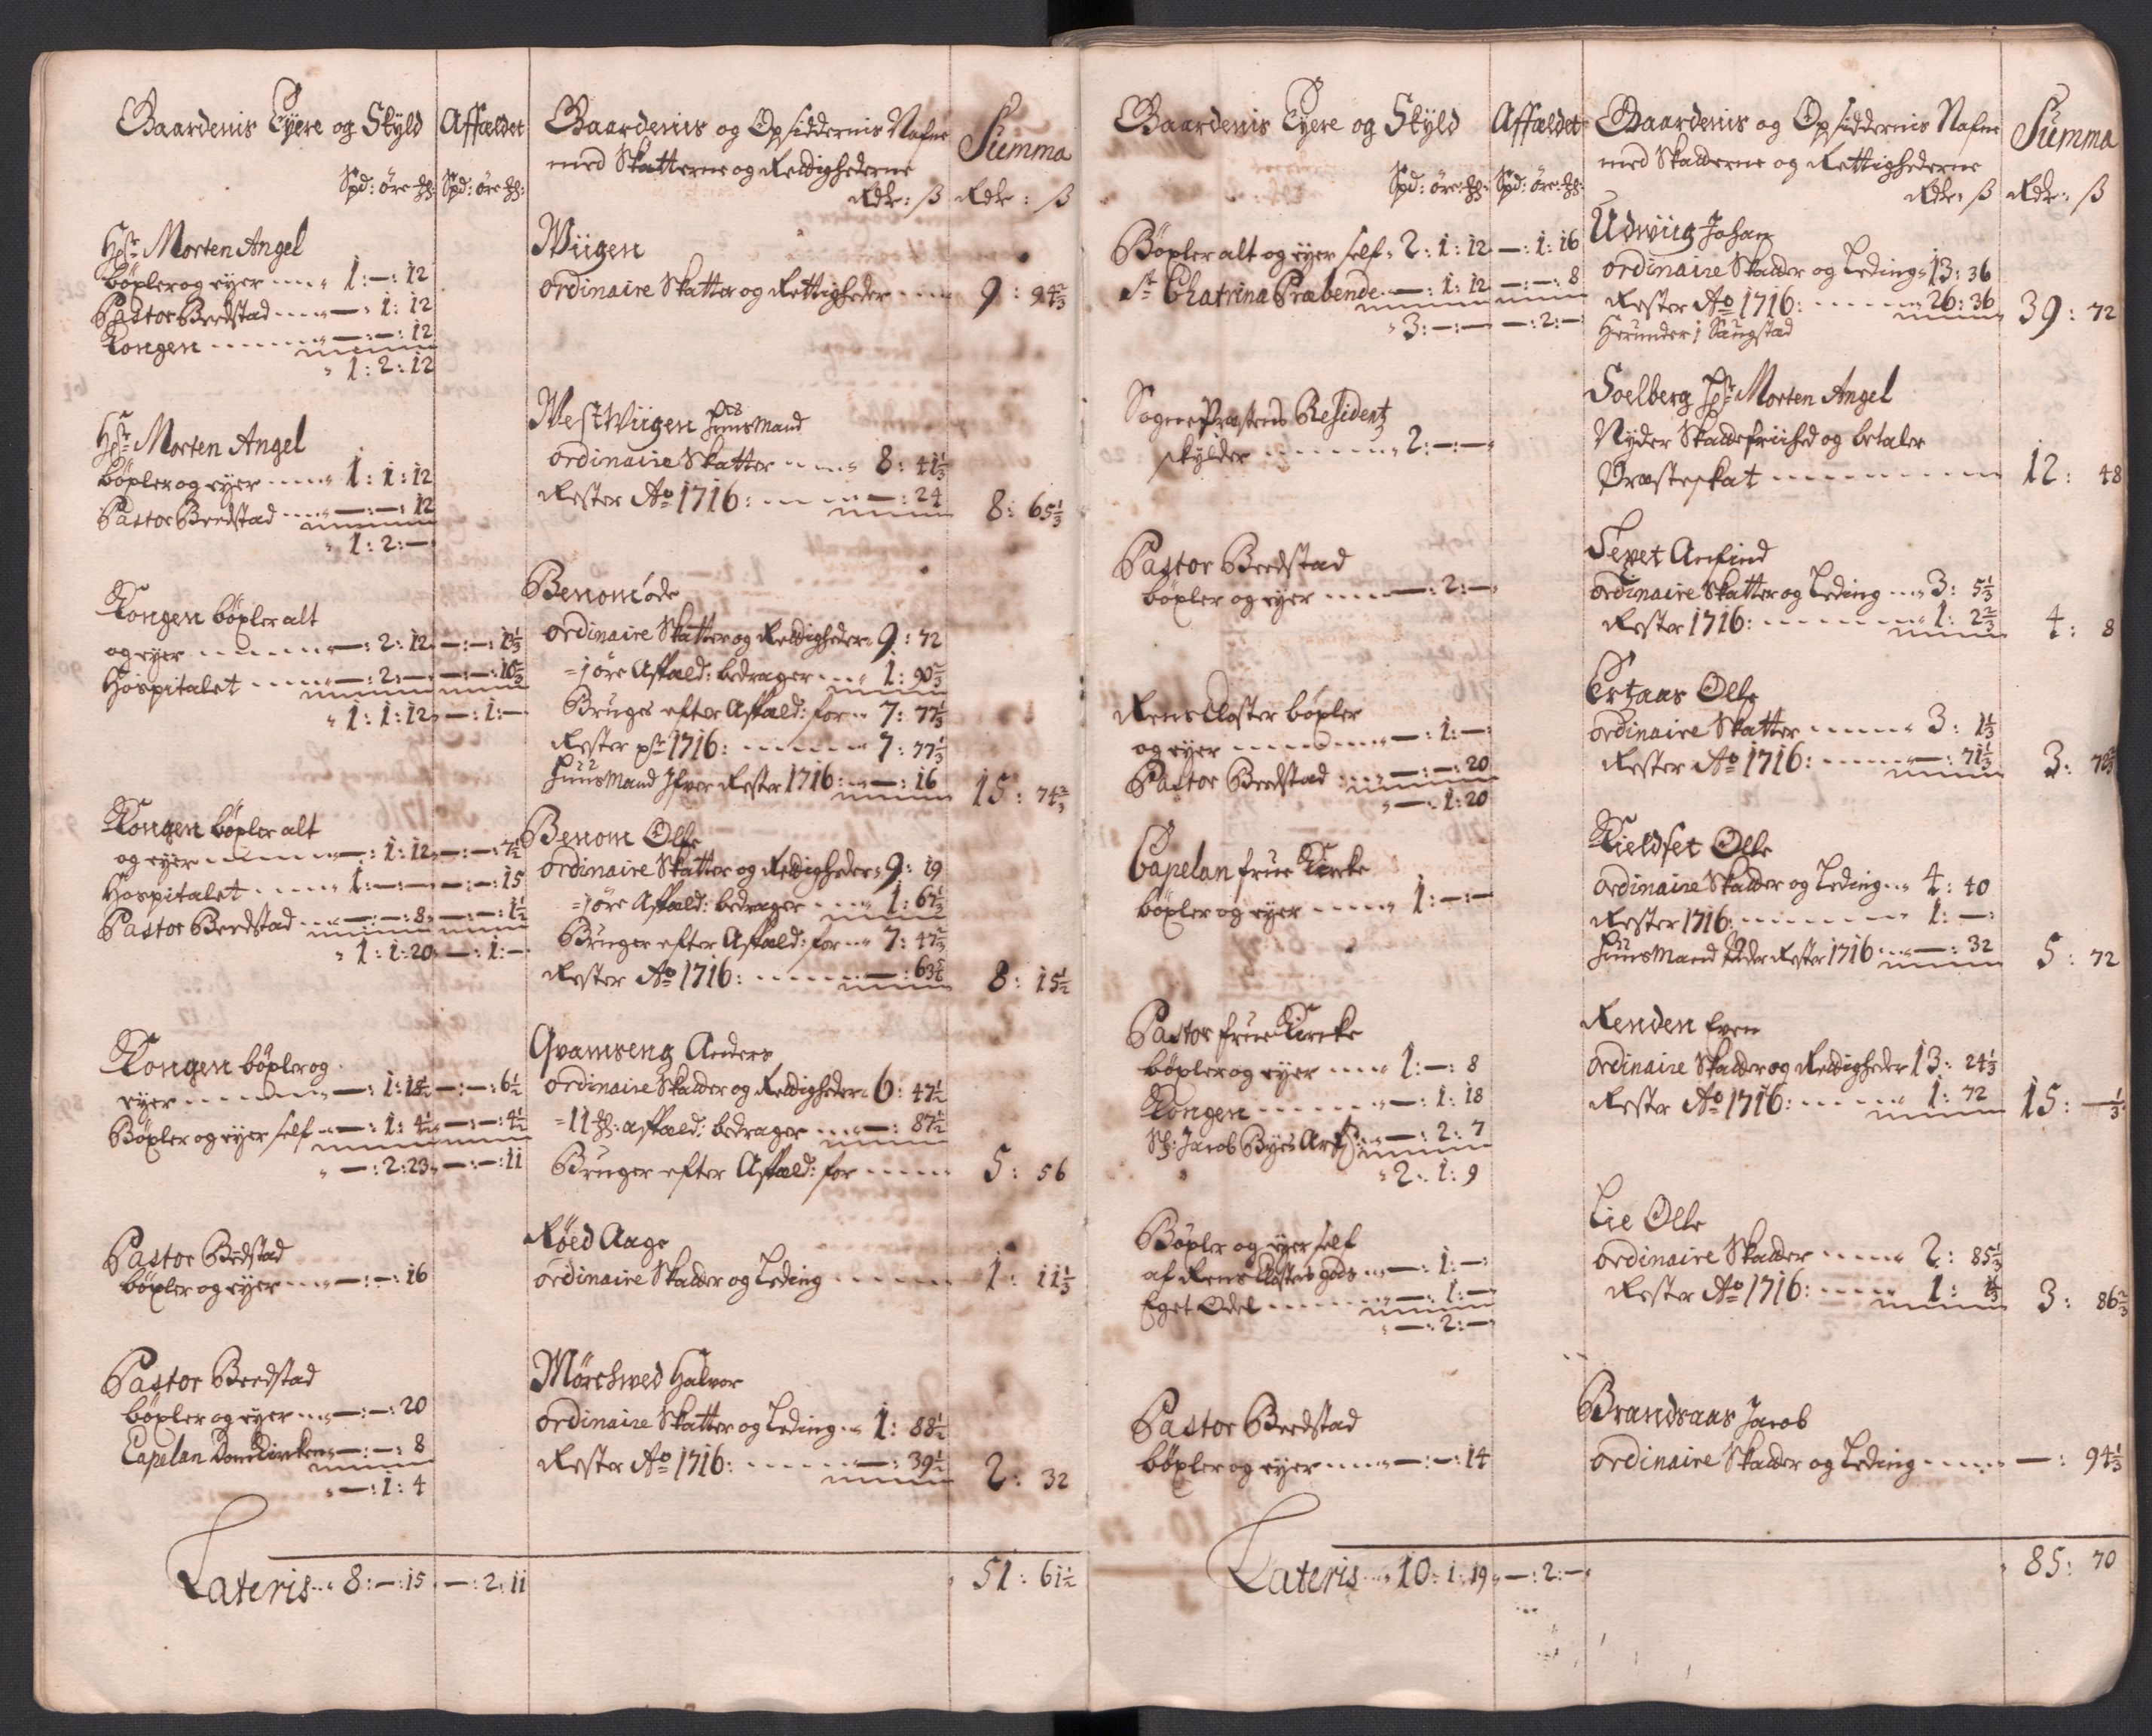 Gaardenis Eyere og Skyld
Affældet
Gaardenis og Opsiddernis Nafne
med Skatterne og Rettighederne
Summa
Spd: öre
Spd: öre
Rdr: ß
Rdr: ß
Hr Morten Angel
böxler og eyer 1:—:12
Pastor Bredstad —:1:12
Kongen —:—:12
1:2:12
Wiigen
ordinaire Skatter og Rettigheder 9:94⅔
Hr Morten Angel
böxler og eyer 1:1:12
Pastor Bredstad —:—:12
1:2:—
West Wiigen huusmand
ordinaire Skatter 8:41⅓
Rester Ao 1716: —:24
8:65⅓
Kongen böxler alt
og eyer —:2:12 —:—:13⅓
Hospitalet —:2:— —:—:10⅔
1:1:12 —:1:—
Benom öde
ordinaire Skatter og Rettigheder 9:72
=1 öre Affæld: bedrager 1:90⅔
Bruges efter Affæld: for 7:77⅓
Rester pr 1716: 7:77⅓
huusmand Ifver Rester 1716: —:16
15:74⅔
Kongen böxler alt
og eyer —:1:12 —:—:7½
Hospitalet 1:—:— —:—:15
Pastor Bredstad —:—:8 —:—:1½
1:1:20 —:1:—
Benom Olle
ordinaire Skatter og Rettigheder 9:19
=1 öre Affæld: bedrager 1:67⅓
Bruger efter Affæld: for 7:47⅔
Rester Ao 1716: —:63⅚
8:15½
Kongen böxler og
eyer —:1:18½ —:—:6½
Böxler og eyer self —:1:4½ —:—:4½
—:2:23 —:—:11
Qvamseng Anders
ordinaire Skatter og Rettigheder 6:47½
=11 affæld: bedrager —:87½
Bruger efter Affæld: for 5:56
Pastor Bredstad
böxler og eyer —:—:16
Röed Aage
ordinaire Skatter og Leding 1:11⅓
Pastor Bredstad
böxler og eyer —:—:20
Capelan Domkircken —:—:8
—:1:4
Mörchwed Halvor
ordinaire Skatter og Leding 1:88½
Rester Ao 1716: —:39½
2:32
Lateris 8:—:15 —:2:11
51:61½
Gaardenis Eyere og Skyld
Affældet
Gaardenis og Opsiddernis Nafne
med Skatterne og Rettighederne
Summa
Spd: öre
Spd: öre
Rdr: ß
Rdr: ß
Böxler alt og eyer self 2:1:12 —:1:16
St Chatrina Præbende —:1:12 —:—:8
3:—:— —:2:—
Udwiig Johan
ordinaire Skatter og Leding 13:36
Rester Ao 1716: 26:36
39:72
Herunder i Saugstad
Sognepræstens Residentz
skylder 2:—:—
Soelberg Hr Morten Angel
Nyder Skattefriihed og betaler
Præsteskat 12:48
Pastor Bredstad
böxler og eyer —:2:—
Sexet Arfind
ordinaire Skatter og Leding 3:5⅓
Rester 1716: 1:2⅔
4:8
Rens Closter böxler
og eyer —:1:—
Pastor Bredstad —:—:20
—:1:20
Ertaas Olle
ordinaire Skatter 3:1⅓
Rester Ao 1716: —:71⅓
3:72⅔
Capelan frue Kircke
böxler og eyer 1:—:—
Kieldset Olle
ordinaire Skatter og Leding 4:40
Rester 1716: 1:—
huusmand Peder Rester 1716: —:32
5:72
Pastor frue Kircke
böxler og eyer 1:—:8
Kongen —:1:18
Sl: Jacob Byes Arf: —:2:7
2:1:9
Renden Even
ordinaire Skatter og Rettigheder 13:24⅓
Rester Ao 1716: 1:72
15:—⅓
Böxler og eyer self
af Rens Closters gods —:1:—
Eget Odel —:1:—
—:2:—
Lie Olle
ordinaire Skatter 2:85⅓
Rester Ao 1716: 1:1⅓
3:86⅔
Pastor Bredstad
böxler og eyer —:—:14
Brandsaas Jacob
ordinaire Skatter og Leding —:94⅓
Lateris 10:1:19 —:2:—
85:70